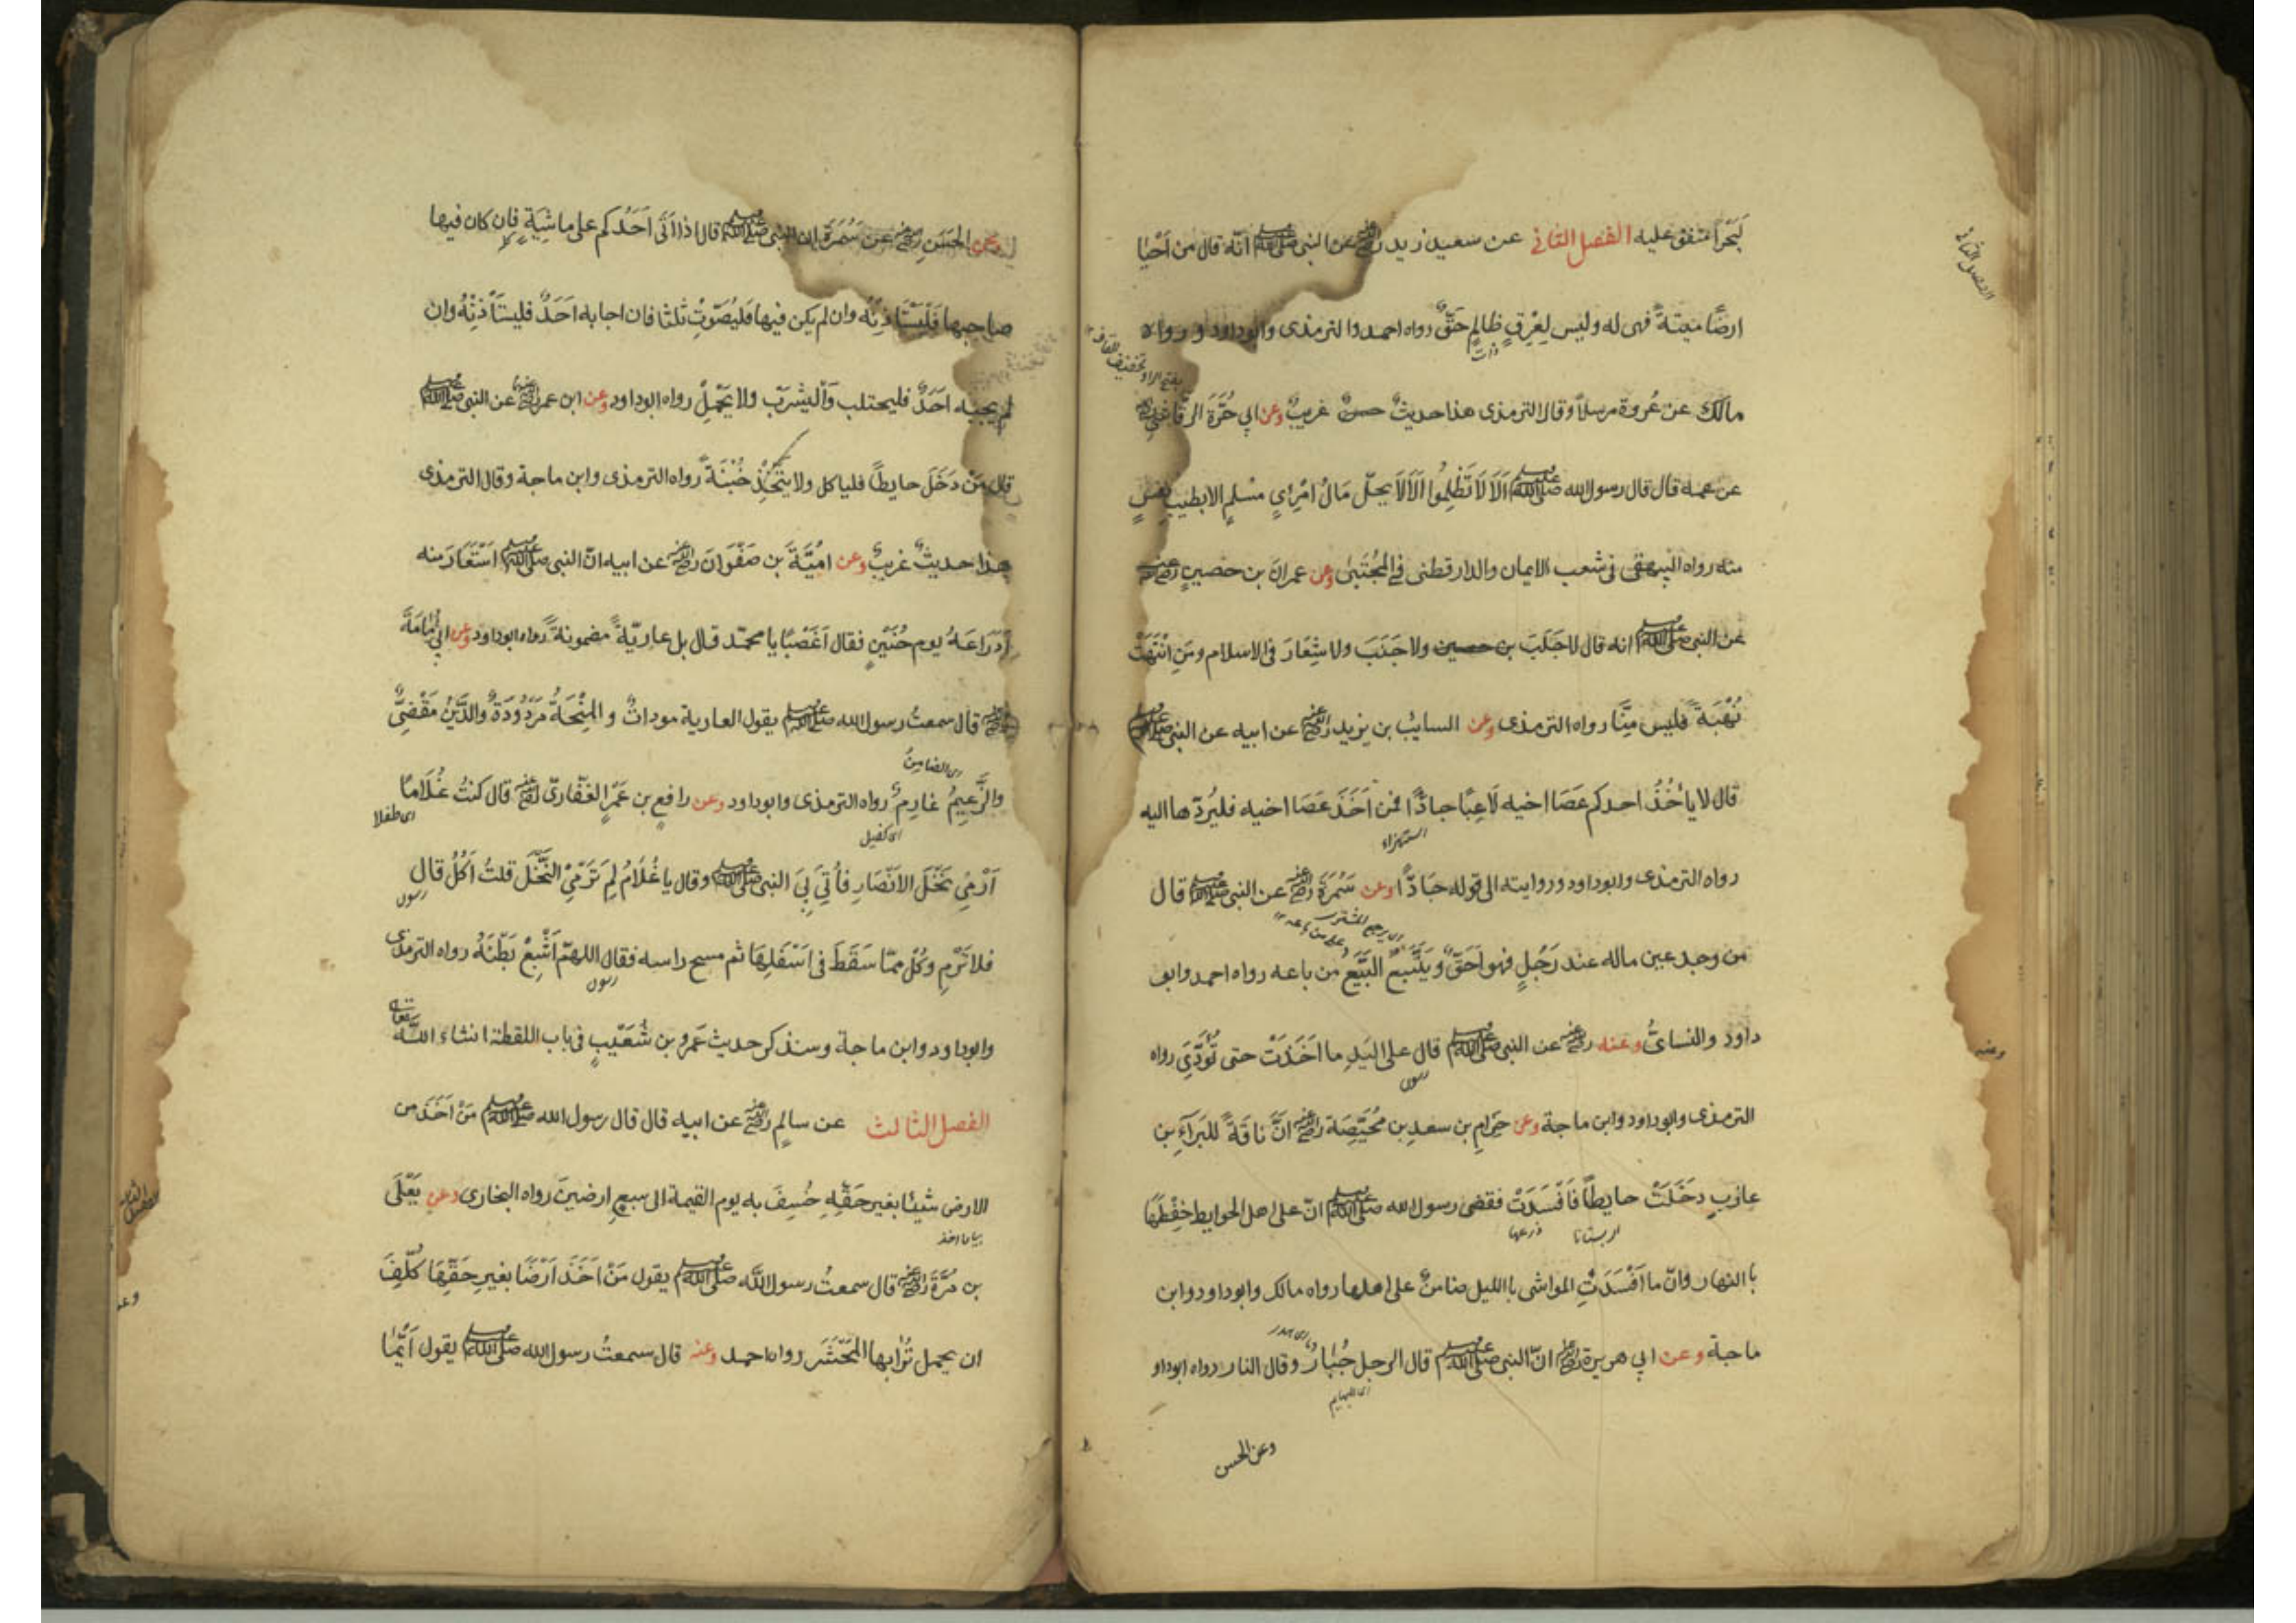 لَبَحْراً متفق عليه الفصل الثاني عن سعيد زيد رضي الله عنه عن النبي صلى الله عليه وسلم انّه قال من اَحْيا
ارضًا ميتةً فهى له وليس لِعِرْقٍ ظالمٍ حَقٌّ رواه احمد والترمذى وابوداود و رواه
مالك عن عُروة مرسلاً وقال الترمذى هذا حديثٌ حسنٌ غريبٌ وعن ابي حُرَّةَ الرقاشيّ
عن عمه قال قال رسول الله صلى الله عليه وسلم اَلَا لَا تَظْلِمُوا اَلَا لَا يحلّ مَالُ امْرِئٍ مسْلمٍ الا بطيبِ نفسٍ
منه رواه البيهقى فى شعب الايمان والدارقطنى في المُجْتَبٰى وعن عمرانَ بن حصينٍ رضي الله عنه
عن النبي صلى الله عليه وسلم انه قال لا جَلَبَ بن حصين ولا جَنَبَ ولا شِغَارَ فى الاسلام ومَنِ انْتَهَبَ
نُهْبَةً فليس مِنَّا رواه الترمذى وعن السايب بن يزيد رضي الله عنه عن ابيه عن النبي صلى الله عليه وسلم
قال لا ياْخُذُ احدكم عَصَا اخيه لَاعِبًا جادًّا فمن اَخَذَ عَصَا اخيه فليُرَدّها اليه
استهزاء
رواه الترمذى وابوداود وروايته الى قوله جَادًّا وعن سَمُرَةَ رضي الله عنه عن النبي صلى الله عليه وسلم قال
من وجد عين ماله عند رَجُلٍ فهو اَحَقُّ و يَتَّبِعُ البَيِّعُ من باعه رواه احمد وابو
داود والنسائىُّ وعنه رضي الله عنه عن النبي صلى الله عليه وسلم قال على اليَدِ ما اَخَذَتْ حتى تُؤَدِّيَ رواه
الترمذى وابوداود وابن ماجة وعن حَرَامِ بن سعدِ بن مُحَيِّصَة رضي الله عنه انَّ ناقَةً للبَرآءِ بن
عازبٍ دخَلَتْ حايطًا فَاَفْسَدَتْ فقضى رسول الله صلى الله عليه وسلم انّ على اهل الحوايط حِفْظَهَا
اى بستانا زرعها
باالنهار وانّ ما اَفْسَدَتِ المواشى باالليل ضامنٌ على اهلها رواه مالك وابوداود وابن
اى هدر
ماجة وعن ابي هريرة رضي الله عنه انّ النبي صلى الله عليه وسلم قال الرجل جُبَارٌ وقال النار رواه ابوداو
وعن الحسن
الفصل الثاني
وعنه
وعن الحَسَنِ رضي الله عنه عن سَمُرَة ان النبي صلى الله عليه وسلم قال اذا اَتٰى اَحَدُكم على ماشِيَةٍ فاِن كان فيها
صاحبها فَلْيَسْتَاْذِنْهُ وان لم يكن فيها فليُصَوِّتْ ثلثا فان اجابه اَحَدٌ فليستَأْذِنْهُ وان
لم يجيبه اَحَدٌ فليحتلب وَالْيشْرَبْ ولا يَحْمِلْ رواه ابوداود وعن ابن عمر رضي الله عنهما عن النبي صلى الله عليه وسلم
قال مَنْ دَخَلَ حايطًا فلياكل ولا يتَّخِذْ خُبْنَةً رواه الترمذى وابن ماجة وقال الترمذى
هذا حديثٌ غريبٌ وعن اميَّةَ بن صَفْوَانَ رضي الله عنه عن ابيه انّ النبي صلى الله عليه وسلم اسْتَعَارَ منه
اَدْرَاعَهُ يوم حُنَيْنٍ فقال اَغَصْبًا يا محمّد قال بل عاريّةً مضمونةً رواه ابوداود وعن ابي اُمَامَةَ
رضي الله عنه قال سمعتُ رسول الله صلى الله عليه وسلم يقول العارية مودات و المِنْحَةُ مَرْدُودَةٌ والدَّيْنُ مَقْضِيٌّ
اى الضامن
والزَّعِيمُ غارِمٌ رواه الترمذى وابوداود وعن رافعِ بن عَمْرٍ الغفاريّ رضي الله عنه قال كنتُ غُلَامًا
اى كفيل اى طفلا
اَرْمِي نَخْلَ الاَنْصَارِ فاُتِيَ بِيَ النبي صلى الله عليه وسلم وقال يا غُلَامُ لِمَ تَرْمِي النَّخْلَ قلتُ اٰكُلُ قال
فلا تَرْمِ وكُلْ ممّا سَقَطَ فى اَسْفَلِهَا ثم مسح راسه فقال اللهمّ اَشْبِعْ بَطْنَهُ رواه الترمذى
وابوداود وابن ماجة وسنذكر حديث عَمْرو بن شُعَيْبٍ فى باب اللقطة انشاء اللّٰه تعالى
الفصل الثالث عن سالمٍ رضي الله عنه عن ابيه قال قال رسول الله صلى الله عليه وسلم مَنْ اَخَذَ من
الارض شيئًا بغير حَقِّهِ خُسِفَ به يوم القيمة الى سبعِ ارضينَ رواه البخارى وعن يَعْلَى
بن مُرَّةَ رضي الله عنه قال سمعتُ رسول اللّٰه صلى الله عليه وسلم يقول مَنْ اَخَذَ اَرْضًا بغيرِ حَقِّهَا كُلِّفَ
ان يحمل تُرابها المَحْشَر رواه احمد وعنه قال سمعتُ رسول الله صلى الله عليه وسلم يقول اَيُّمَا